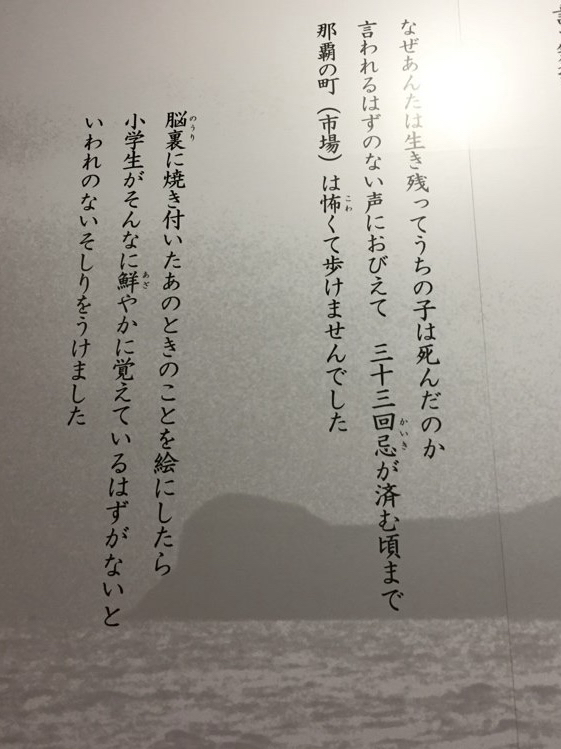 なぜあんたは生き残ってうちの子は死んだのか
言われるはずのない声におびえて　三十三回忌が済む頃まで
那覇の町（市場）は怖くて歩けませんでした
脳裏に焼き付いたあのときのことを絵にしたら
小学生がそんなに鮮やかに覚えているはずがないと
いわれのないそしりをうけました